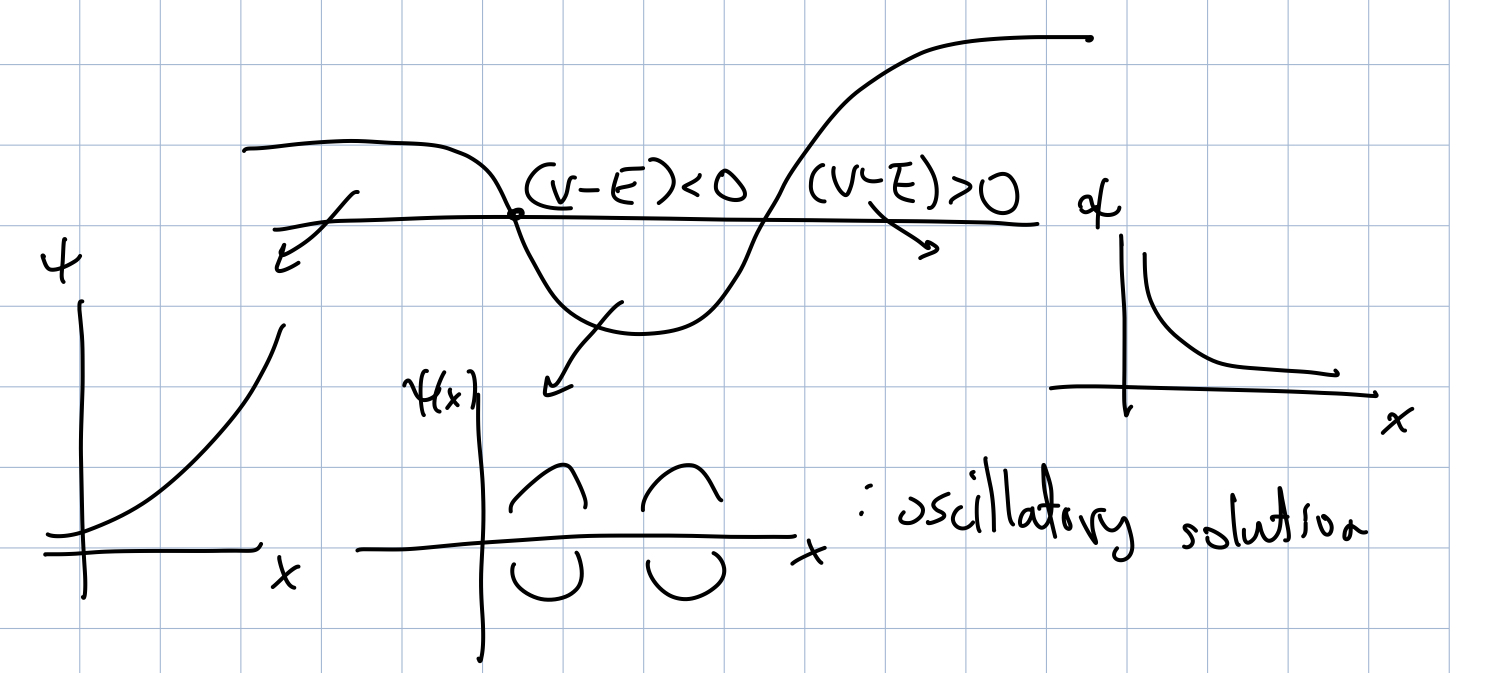 (V-E)<0 (V-E)>0
ψ
ψ(x)
x
x
x
: oscillatory solution